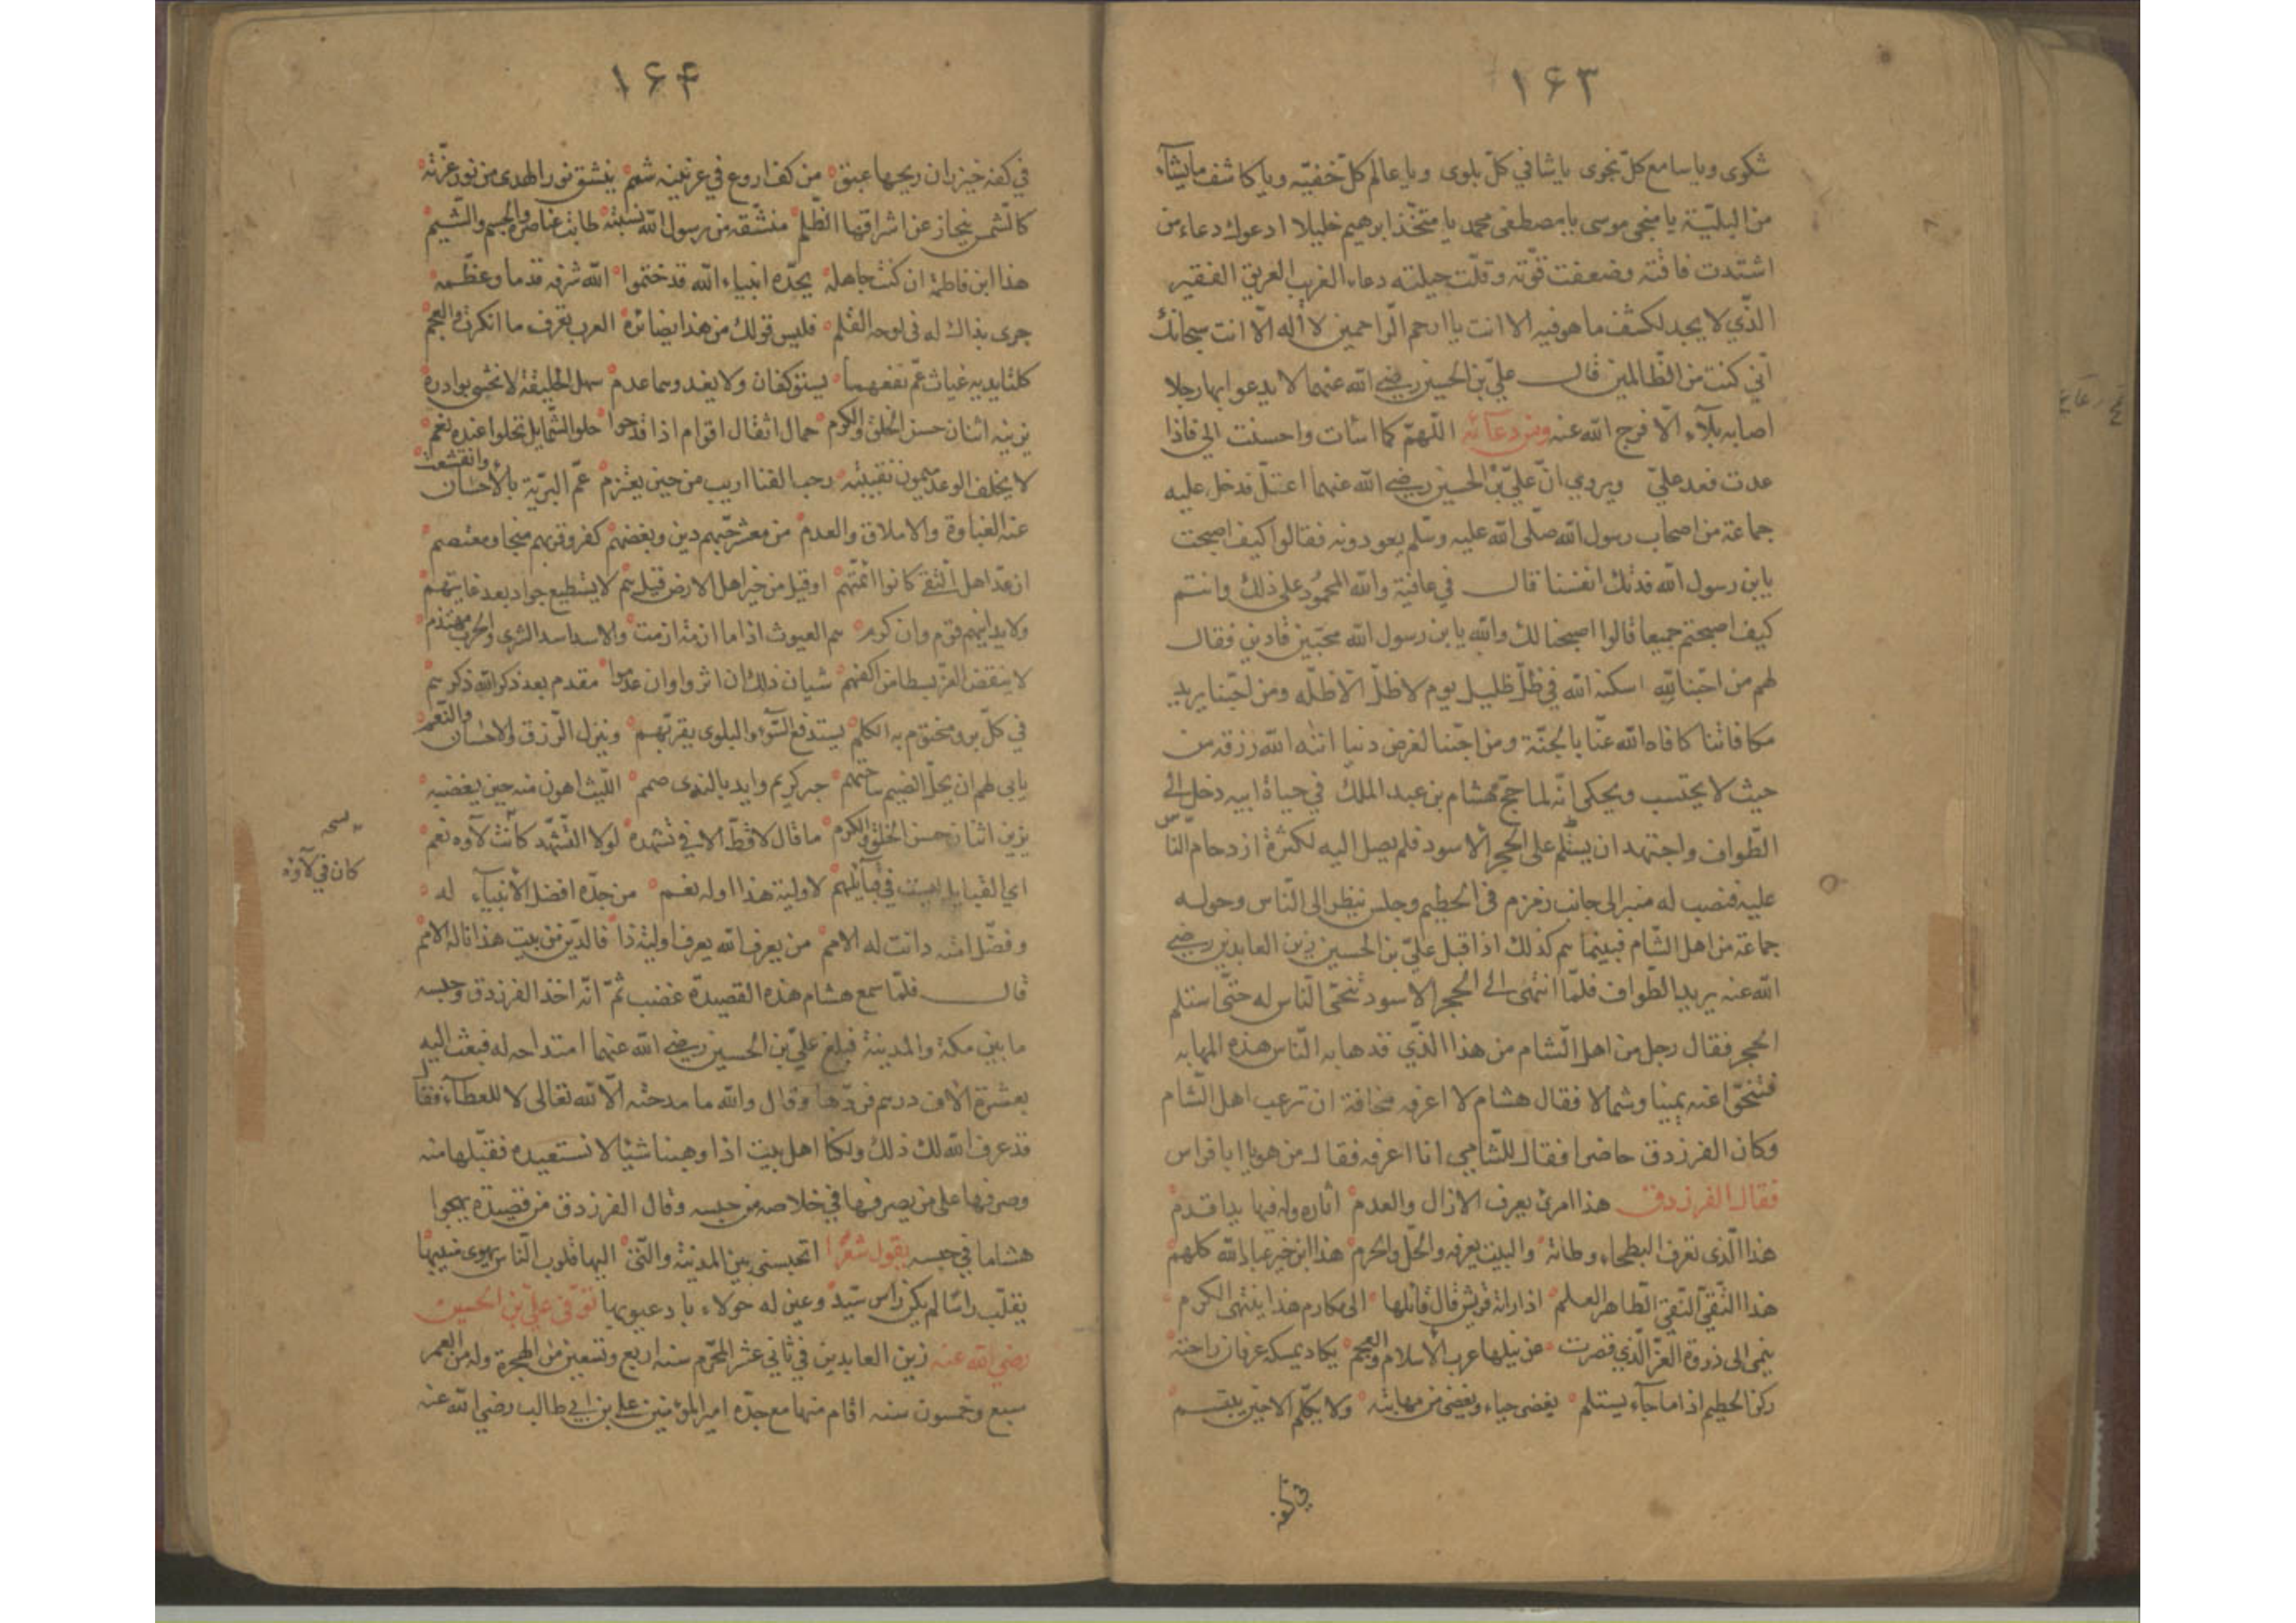 ١٦٣
شكوى ويا سامع كلّ نجوى يا شافي كلّ بلوى ويا عالم كلّ خفيّه ويا كاشف ما يشآء
من البليّة يا منجى موسى يا مصطفى محمد يا متخّذ ابرهيم خليلا ادعوك دعاء من
اشتدت فاقته وضعفت قوّته وقلّت حيلته دعاء الغريب الغريق الفقير
الذّي لا يجد لكشف ما هو فيه الا انت يا ارحم الرّاحمين لا أله الّا انت سبحانك
انّي كنت من الظّالمين قال علىّ بن الحسين رضي الله عنهما لا يدعوا بها رجلا
اصابه بلآء الّا فرج الله عنه ومن دعآئه اللّهمّ كما اسات واحسنت الي فاذا
عدت فعد علىّ ويروى انّ علىّ بن الحسين رضي الله عنهما اعتلّ فدخل عليه
جماعة من اصحاب رسول الله صلّى الله عليه وسلّم يعودونه فقالوا كيف اصبحت
يابن رسول الله فدتك انفسنا قال في عافية والله المحمُود على ذلك وانتم
كيف اصبحتم جميعا قالوا اصبحنا لك والله يا بن رسول الله محبّين فادين فقال
لهم من احبّنا لله اسكنه الله في ظلّ ظليل يوم لا ظلّ الّا ظلّه ومن احبّنا يريد
مكافاتنا كافاه الله عنّا بالجنّة ومن احبّنا لغرض دنيا اتنه الله رزقه من
حيث لا يحتسب ويحكى انّه لما حجّ هشام بن عبد الملك في حياة ابيه دخل الى
الطّواف واجتهد ان يستلم على الحجر الاسود فلم يصل اليه لكثرة ازدحام النّاس
عليه فنصب له منبر الى جانب زمزم في الحطيم وجلس ينظر الى النّاس وحوله
جماعة من اهل الشّام فبينما هم كذلك اذا قبل علىّ بن الحسين زين العابدين رضي
الله عنه يريد الطّواف فلمّا انتهى الى الحجر الاسود تنحّى النّاس له حتّى استلم
الحجر فقال رجل من اهل الشّام من هذا الذّي قد هابه النّاس هذه المهابه
فتنحّوا عنه يمينا وشمالا فقال هشام لا اعرفه مخافة ان ترعب اهل الشّام
وكان الفرزدق حاضرا فقال للشّامي انا اعرفه فقال من هو يا ابا فراس
فقال الفرزدق هذا امرئ يعرف الازال والعدم اثاره وله فيها يد اقدم
هذا الّذي تعرف البطحاء وطاته والبيت يعرفه والحلّ والحرم هذا ابن خير عباد الله كلهم
هذا التّقيّ النّقيّ الطّاهر العلم اذا راته قريش قال قائلها الى مكارم هذا ينتهى الكرم
ينمى الى ذروة العزّ الّذي قصرت عن نيلها عرب الاسلام والعجم يكاد يمسكه عرفان راحته
ركن الحطيم اذا ما جآء يستلم يغضى حياء ويغضى من مهابته ولا يكلّم الا حين يبتسم
في كفه
١٦٤
في كفه خيزران ريحها عبق من كف اروع في عرنينه شمم ينشق نور الهدى من نور غرّته
كالشّمس ينجاز عن اشراقها الظّلم منشّقه من رسول الله نسبته طابت عناصره والجسم والشّيم
هذا ابن فاطمة ان كنت جاهله بجدّه انبياء الله قد ختموا الله شرفه قدما وعظّمه
جرى بذاك له في لوحه القلم فليس قولك من هذا بضائره العرب تعرف ما انكرت والعجم
كلتا يديه غياث عمّ نفعهما يستوكفان ولا يغدوهما عدم سهل الخليقة لا تخشى بوادره
يزينه اثنان حسن الخلق والكرم حمال اثقال اقوام اذا فدحوا حلو الشّمايل تحلوا عنده نعم
لا يخلف الوعد ميمون نقيبته رحب الفنا اريب من حين يعتزم عمّ البريّة بالاحسان وانقشعت
عنه الغباوة والاملاق والعدم من معشر حبّهم دين وبغضهم كفر وقربهم منجا ومعتصم
ان عدّ اهل التّقى كانوا ائمتّهم او قيل من خير اهل الارض قيل هم لا يستطيع جواد بعد غايتهم
ولا يدانيهم قوم وان كرموا هم الغيوث اذا ما ازمة ازمت والاسد اسد الشرى والحرب
لا ينقض العزّ بسطا من اكفهم شيان ذلك ان اثروا وان عدموا مقدم بعد ذكر الله ذكرهم
في كلّ بر ومختوم به الكلم يستدفع السّوء والبلوى بقربّهم وينزل الرّزق والاحسان والنّعم
يابى لهم ان يحلّ الضيم ساحتهم خير كريم وايد بالندى صمم اللّيث اهون منه حين يغضبه
يزين اثنان حسن الخلق والكرم ما قال لا قطّ الا في تشهده لولا التّشهّد كانت لآوه نعم
نسخه
كان في لآؤه
اي القبايل ليست في رقابهم لاولية هذا او له نعم من جدّه افضل الأنبيآء له
وفضّل امّته دانت له الامم من يعرف الله يعرف اولية ذا فالدّين من بيت هذا ناله الامم
قال فلمّا سمع هشام هذه القصيدة غضب ثمّ انّه اخذ الفرزدق وحبسه
ما بين مكة والمدينة فبلغ علىّ بن الحسين رضي الله عنهما امتداحه له فبعث اليه
بعشرة الاف درهم فردّها وقال والله ما مدحته الّا لله تعالى لا للعطآء فقال
قد عرف الله لك ذلك ولكنا اهل بيت اذا وهبنا شيئا لا نستعيده فقبّلها منه
وصرفها على من يصرفها في خلاصه من حبسه وقال الفرزدق من قصيدة يهجوا
هشاما في حبسه يقول شعرًا اتحبسنى بين المدينة والتّى اليها قلوب النّاس يهوى منيبها
يقلّب راسا لم يكن راس سيّد وعين له حولاء باد عيوبها توفّى علىّ بن الحسين
رضى الله عنه زين العابدين في ثاني عشر المحرّم سنه اربع وتسعين من الهجرة وله من العمر
سبع وخمسون سنه اقام منها مع جدّه امير المؤمنين علي بن ابي طالب رضى الله عنه